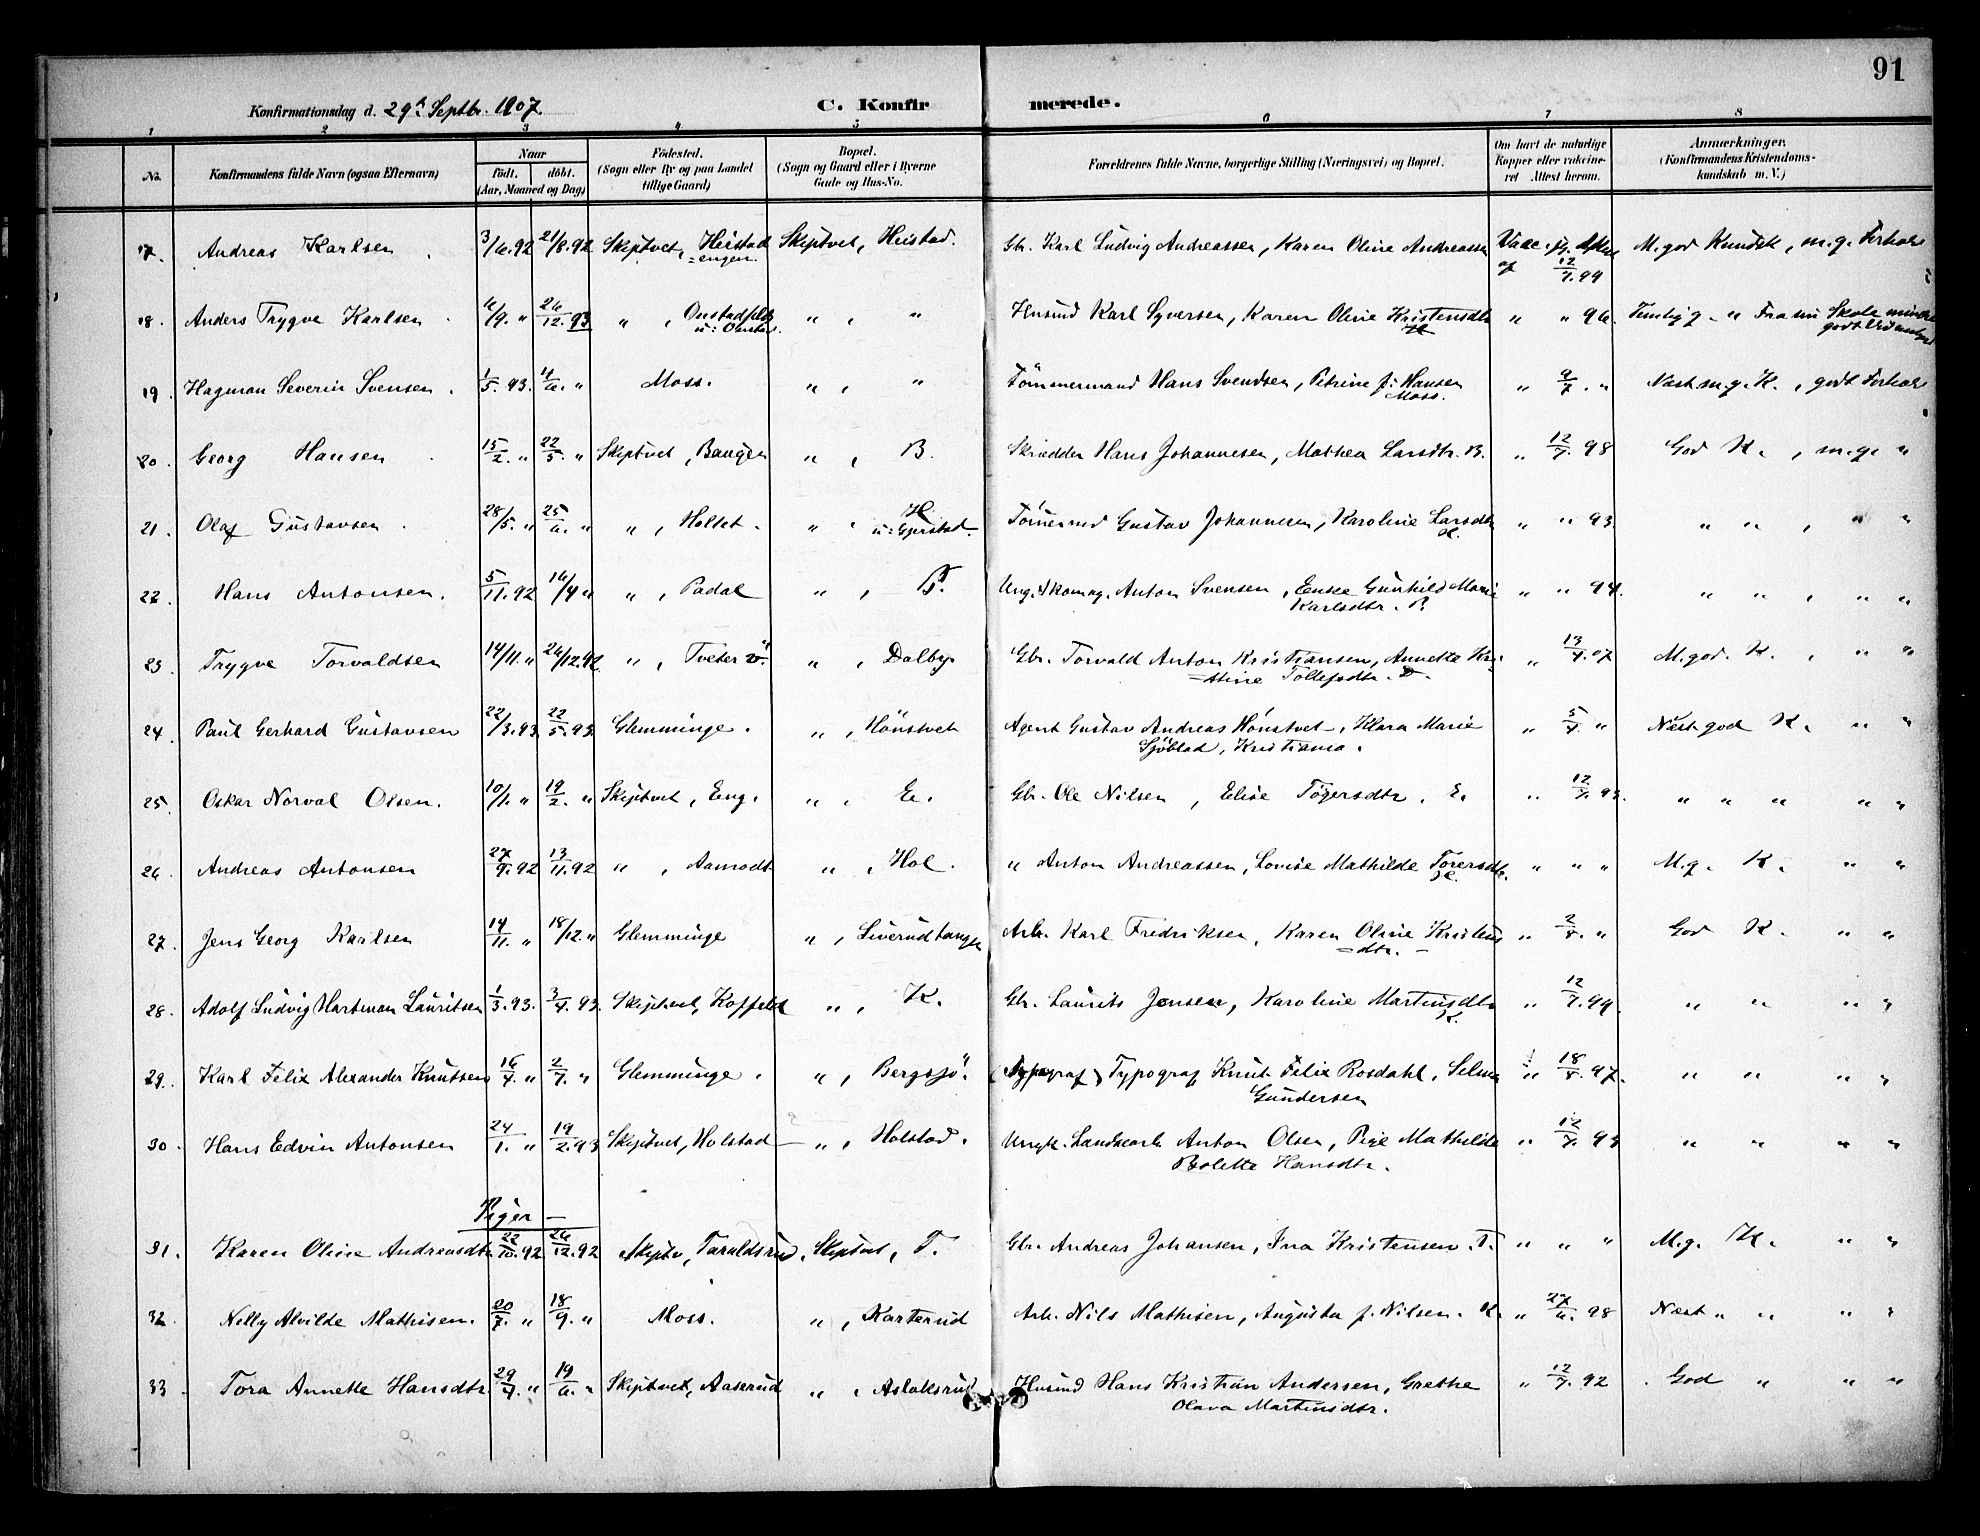 91
Konfirmationsdag d. 29de Septbr. 1907. C. Konfirmerede.
1 2 3 4 5 6 7 8
No. Konfirmandens fulde Navn (ogsaa Efternavn) Naar født. døbt. (Aar, Maaned og Dag) Fødested. (Sogn eller By og paa Landet tillige Gaard) Bopæl. (Sogn og Gaard eller i Byerne Gade og Hus-No. Forældrenes fulde Navne, borgerlige Stilling (Næringsvei) og Bopæl. Om havt de naturlige Kopper eller vakcineret Attest herom. Anmærkninger. (Konfirmandens Kristendomskundskab m. V.)
17. Andreas Karlsen 3/6.92 21/8.92 Skiptvet, Heistad Skiptvet, Heistad. Gbr. Karl Ludvig Andreassen, Karen Oline Andreassen M. god Kundsk, m.g. Forhold
=engen. af 12/7.99
18. Anders Trygve Karlsen 26/12.93 " , " , " Husmd Karl Syversen, Karen Oline Kristensdtr " " 96. " Fra
19. Hagman Severin Svensen. 1/5.93. Moss. " , " Tömmermand Hans Svendsen, Petrine f. Hansen " 9/7. " Næst m.g. K., godt Forhold
Moss.
20. Georg Hansen 15/2. " 22/5. " Skiptvet, Baugen " , B. Skrædder Hans Johannesen, Mathea Larsdtr. B. " 12/7.98 God K. , m.g. "
21. Olaf Gustavsen 28/5. " 25/6. " " , Holset. " , H. Gustav Johannesen, Karoline Larsdtr " " 93. " " , " "
u: Gjerstad. H.
22. Hans Antonsen. 5/11.92 16/4 " " , Padal " , P. Ung. Skomag. Anton Svensen, Enke Gunhild Marie " " 94. " " , " "
Karlsdtr. P.
23. Trygve Torvaldsen 14/11. " 26/12.92 " , Tveter " , Dalby Gbr. Torvald Anton Kristiansen, Annette Kri= " 13/4.07 M. god. K. , " "
=stine Tollefsdtr. D.
24. Paul Gerhard Gustavsen 22/3.93. 22/5.93. Glemminge. " , Hönstvet Agent Gustav Andreas Hönstvet, Klara Marie " 5/4 " Næst god K. " "
Sjöblad, Kristiania.
25. Oskar Norval Olsen. 10/1. " 19/2. " Skiptvet, Eng. " , E. Gbr. Ole Nilsen, Elise Tögersdtr. E. " 12/7.93. " " " " "
26. Andreas Antonsen 27/9.92 13/11.92 " , Aamodt " , Hol. " Anton Andreassen, Lovise Mathilde Torersdtr. " " " M.g. K. " "
H.
27. Jens Georg Karlsen 14/11. " 18/12. " Glemminge " , Arb. Karl Fredriksen, Karen Oline Kristens " 2/8. " God K. " "
=dtr. –
28. Adolf Ludvig Hartman Lauritsen 1/3.93. 3/4.93. Skiptvet, Koffeldt " , K. Gbr. Laurits Jensen, Karoline Martinsdtr " 12/7.99. " " " "
K.
29. Karl Felix Alexander Knutsen 16/4. " 2/7. " Glemminge. " , Bergsjö. (Typograf) Typograf Knut Felix Rosdahl, Selma " 18/8.97. " " " "
Gundersen
30. Hans Edvin Antonsen 24/1. " 19/2.93 Skiptvet, Holstad – " , Holstad. Anton Olsen, Pige Mathilde " 12/7.93 " " " "
Bolette Hansdtr.
Piger –
31. Karen Oline Andreasdtr 22/10.92 26/12.92 Skiptv, Taraldsrud, Skiptvet, T. Gbr. Andreas Johansen, Ina Kristensen. T. " " " M.g. K. " "
32. Nelly Alvilde Mathisen. 20/7. " 18/9. " Moss. " , Karterud Arb. Nils Mathisen, Augusta f. Nilsen. K. " 27/6.98 Næst " " " "
33 Tora Annette Hansdtr 29/4. " 19/6. " Skiptvet, Aaserud " , Aslaksrud Husmd Hans Kristian Andersen, Grethe " 12/7.92 God " " "
Olava Martinsdtr.